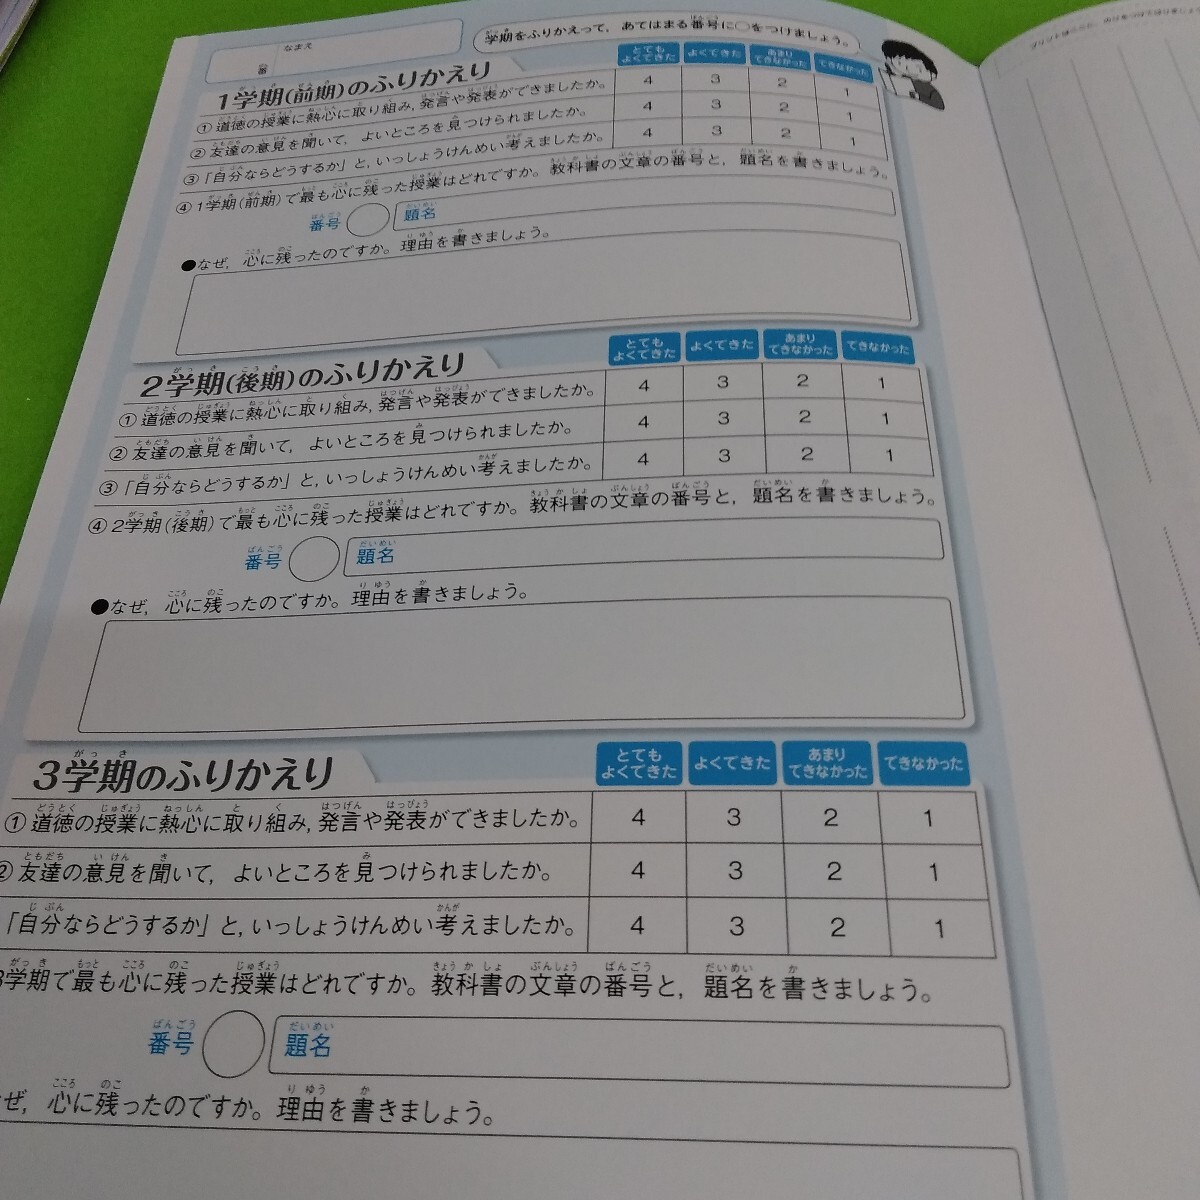 なまえ
番
学期をふりかえって，あてはまる番号に○をつけましょう。
1学期(前期)のふりかえり
とても よくできた よくできた あまり できなかった できなかった
①道徳の授業に熱心に取り組み，発言や発表ができましたか。 4 3 2 1
②友達の意見を聞いて，よいところを見つけられましたか。 4 3 2 1
③「自分ならどうするか」と，いっしょうけんめい考えましたか。 4 3 2 1
④1学期(前期)で最も心に残った授業はどれですか。教科書の文章の番号と，題名を書きましょう。
番号 題名
●なぜ，心に残ったのですか。理由を書きましょう。
2学期(後期)のふりかえり
とても よくできた よくできた あまり できなかった できなかった
①道徳の授業に熱心に取り組み，発言や発表ができましたか。 4 3 2 1
②友達の意見を聞いて，よいところを見つけられましたか。 4 3 2 1
③「自分ならどうするか」と，いっしょうけんめい考えましたか。 4 3 2 1
④2学期(後期)で最も心に残った授業はどれですか。教科書の文章の番号と，題名を書きましょう。
番号 題名
●なぜ，心に残ったのですか。理由を書きましょう。
3学期のふりかえり
とても よくできた よくできた あまり できなかった できなかった
①道徳の授業に熱心に取り組み，発言や発表ができましたか。 4 3 2 1
②友達の意見を聞いて，よいところを見つけられましたか。 4 3 2 1
「自分ならどうするか」と，いっしょうけんめい考えましたか。 4 3 2 1
3学期で最も心に残った授業はどれですか。教科書の文章の番号と，題名を書きましょう。
番号 題名
ぜ，心に残ったのですか。理由を書きましょう。